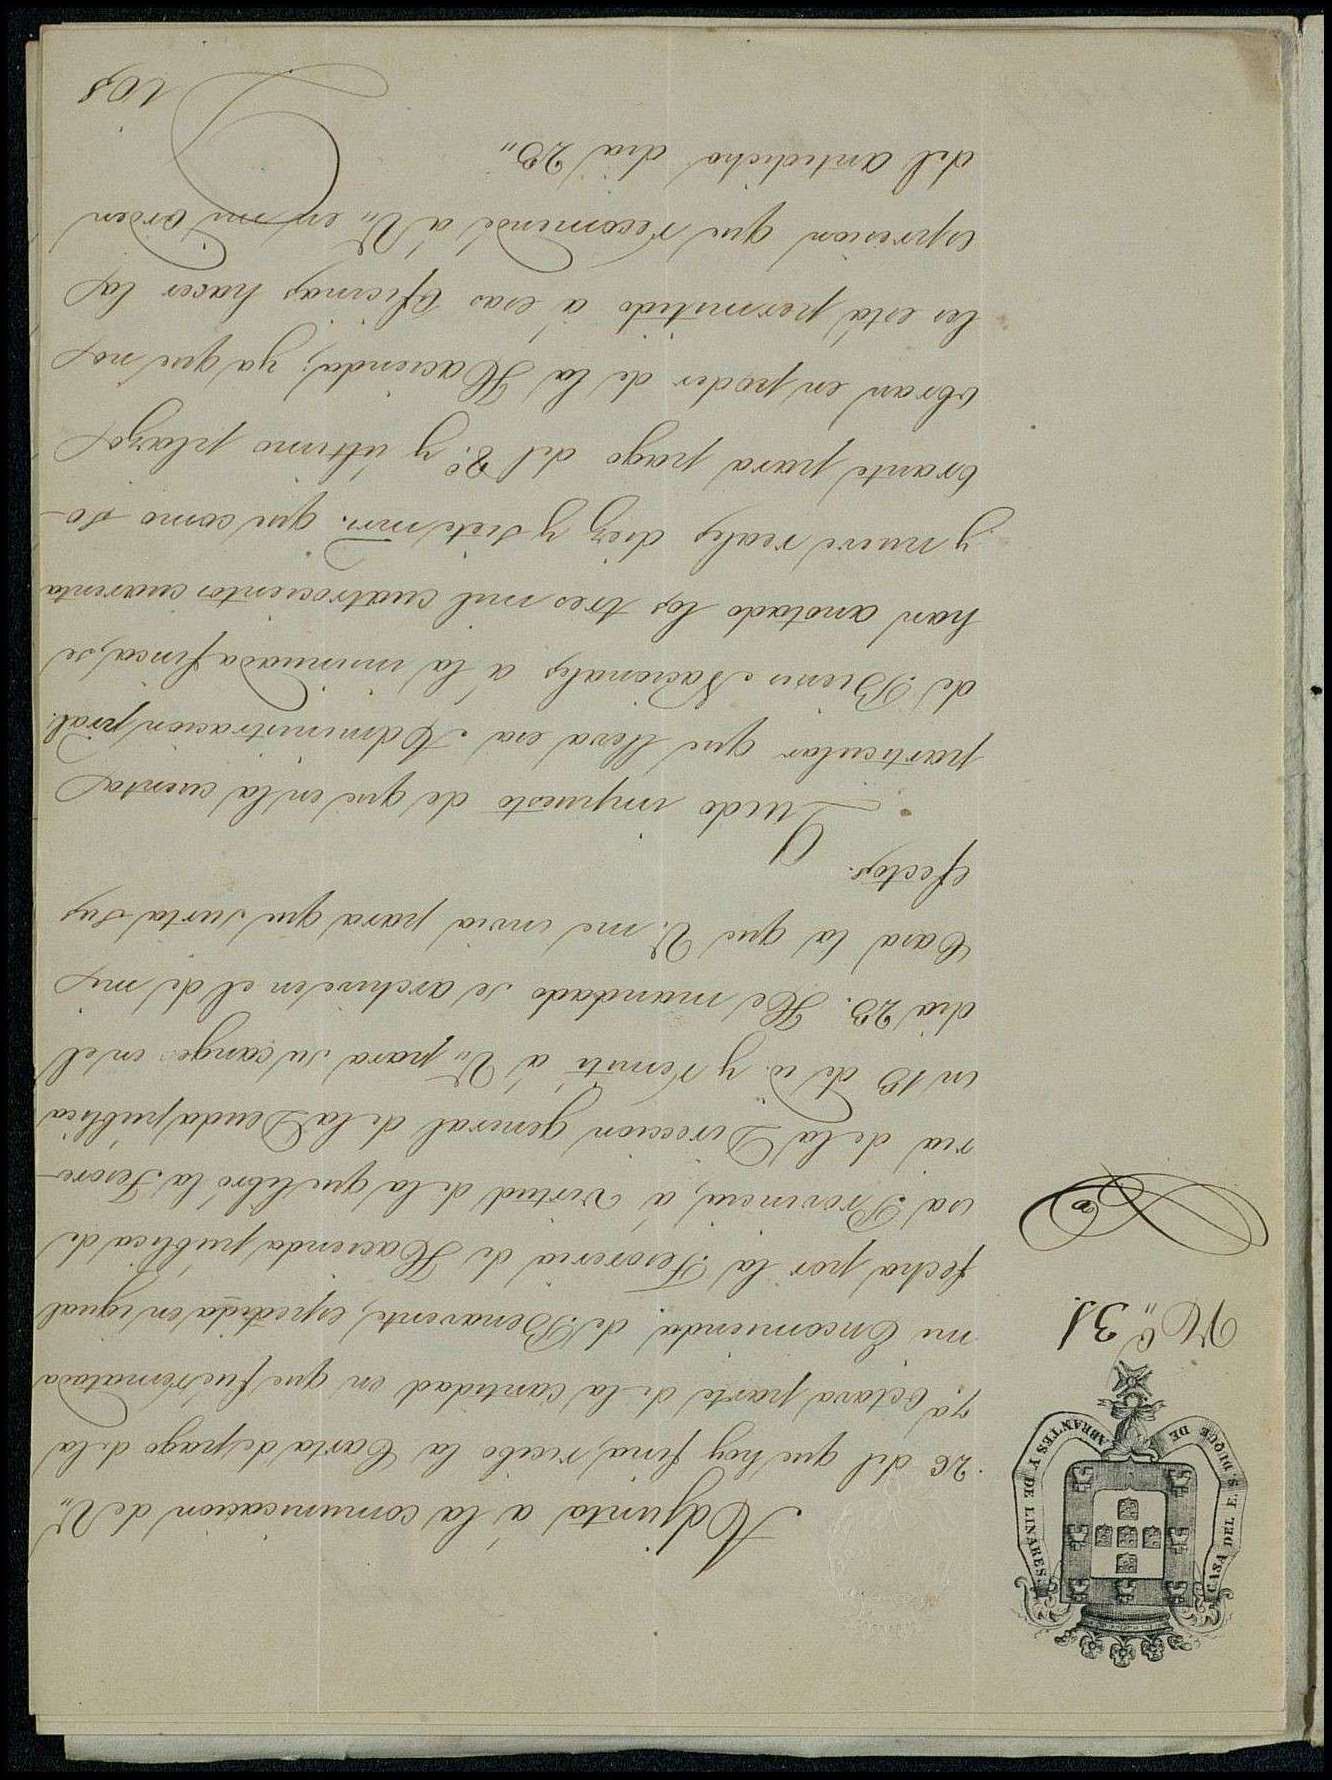 CASA DEL E. S. DUQUE DE ABRANTES Y DE LINARES.
N.º 31
Adjunta á la comunicacion de V.,
26 del que hoy fina, recibo la Carta de pago de la
7.ª octava parte de la cantidad en que fue rematada
mi Encomienda de Benavente, espedida en igual
fecha por la Tesoreria de Hacienda pública de
esa Provincia, á virtud de la que libró la Tesore-
ria de la Direccion general de la Deuda pública
en 18 de id. y remití á V., para su cange en el
dia 23. He mandado se archive en el de mi
Casa la que V. me envia para que surta sus
efectos.
Quedo impuesto de que en la cuenta
particular que lleva esa Administracion pral.
de Bienes Nacionales á la insinuada finca, se
han anotado los tres mil cuatrocientos cuarenta
y nueve reales diez y siete mrs. que como so-
brante para pago del 8.º y último plazo
obran en poder de la Hacienda; ya que no
les está permitido á esas oficinas hacer la
espresion que recomendé á V., en mi orden
del antedicho dia 23.,